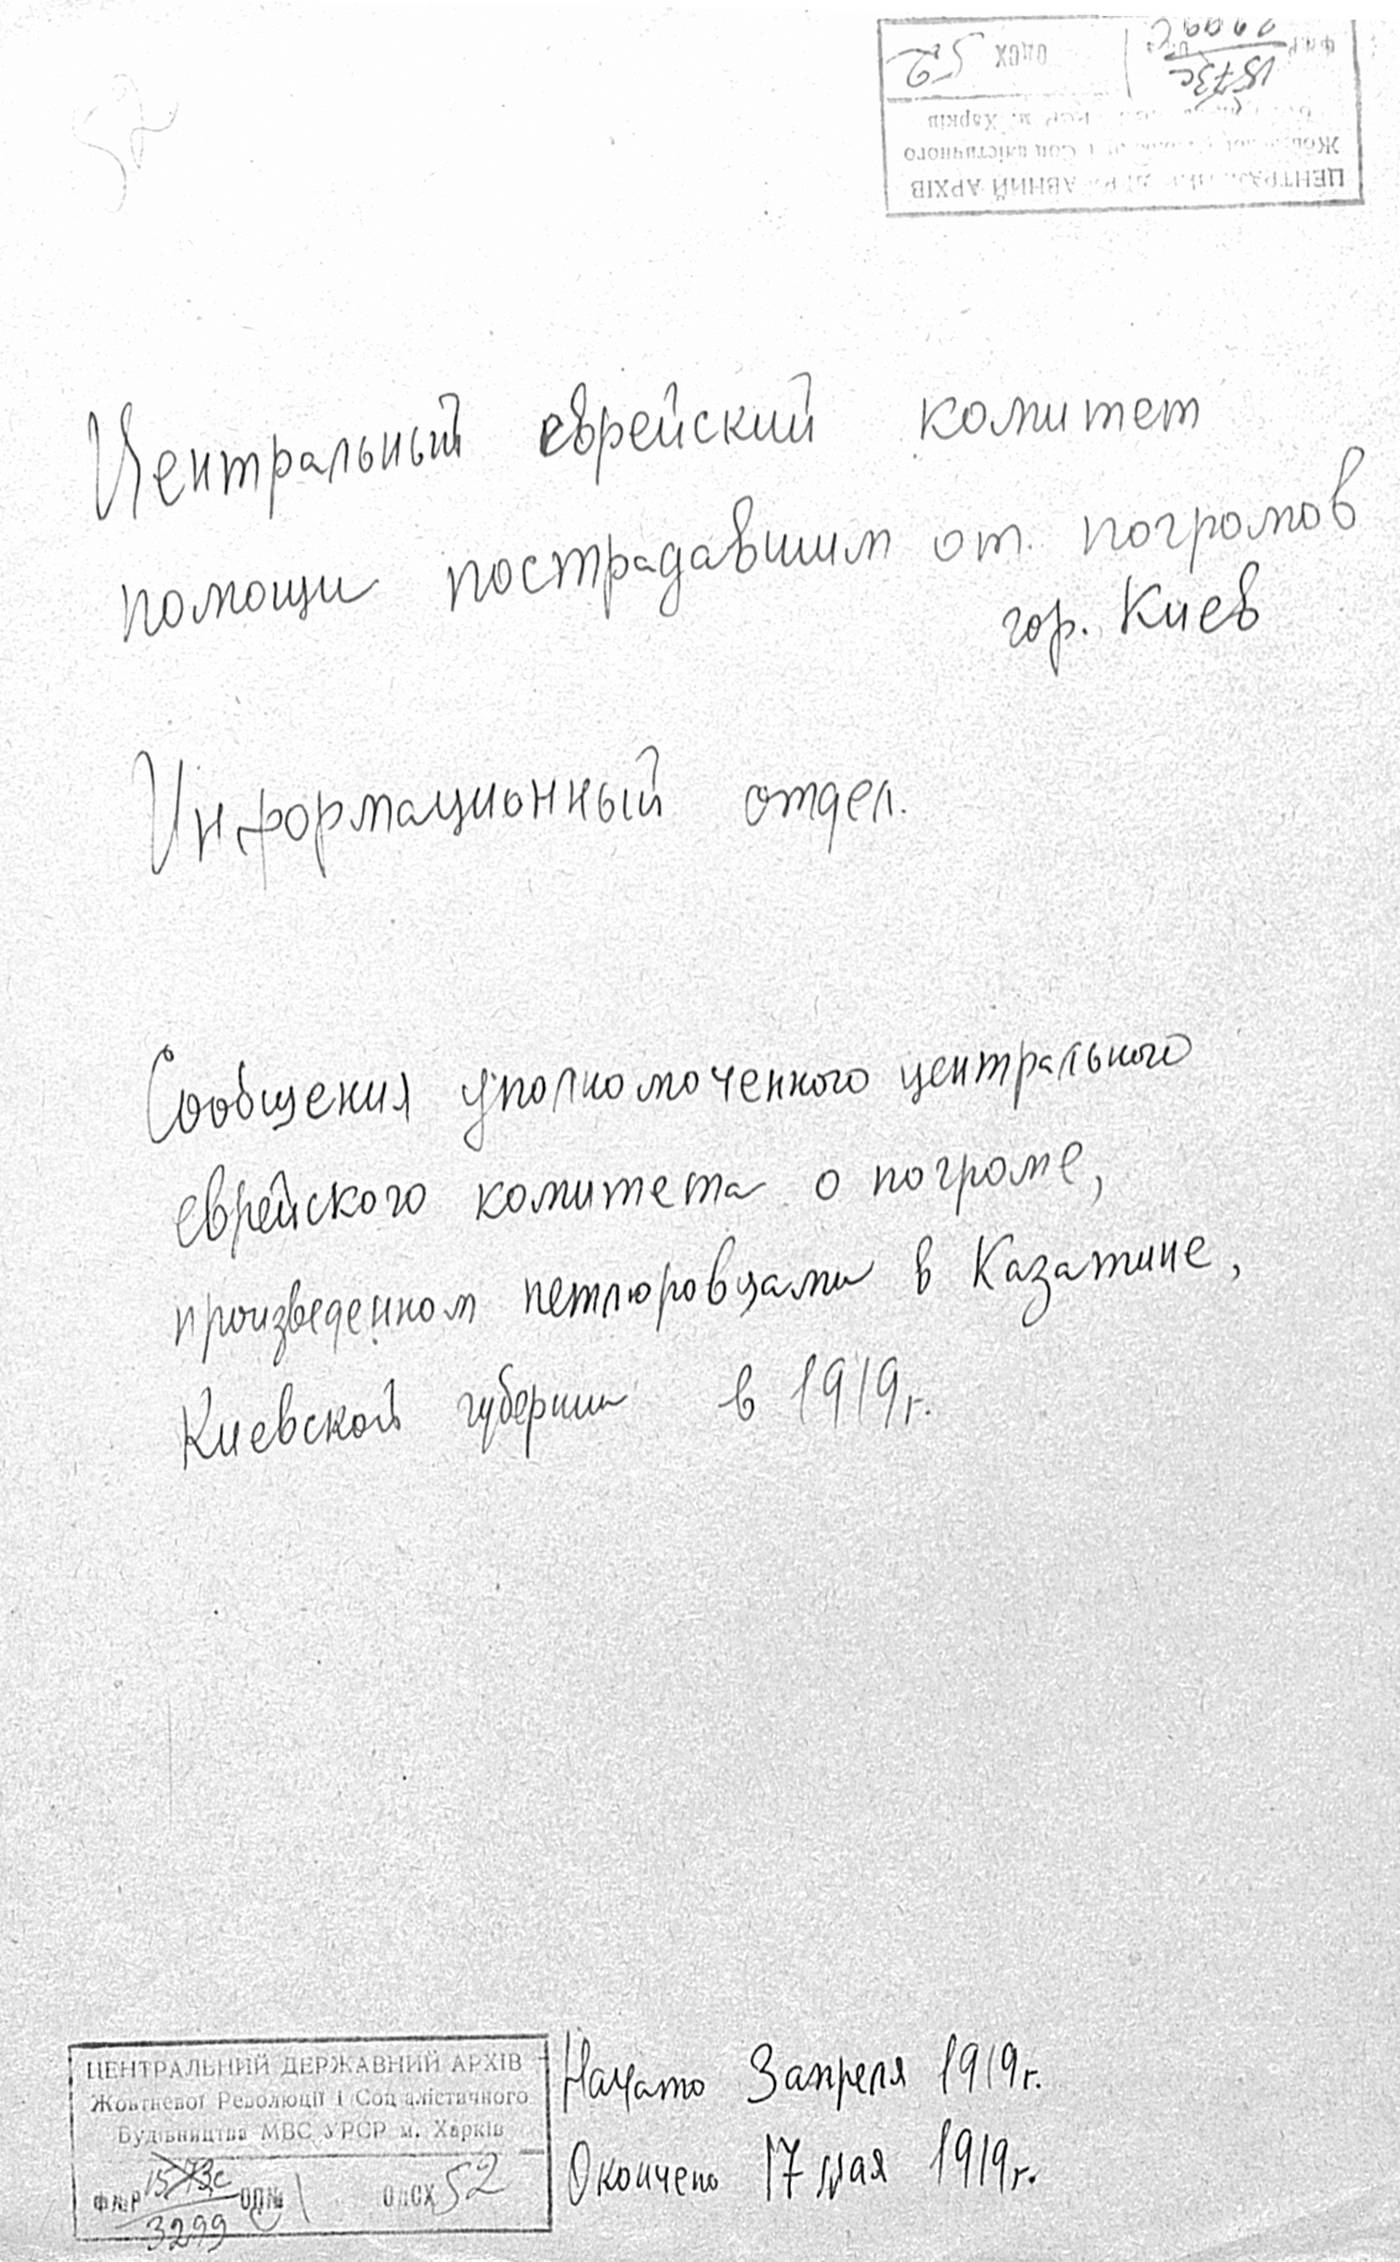 52
ЦЕНТРАЛЬНИЙ ДЕРЖАВНИЙ АРХІВ
Жовтневої Революції і Соціалістичного
УРСР м. Харків
1573с
ОДСХ 52
Центральный еврейский комитет
помощи пострадавшим от погромов
гор. Киев
Информационный отдел.
Сообщения уполномоченного центрального
еврейского комитета о погроме,
произведенном петлюровцами в Казатине,
Киевской губернии в 1919 г.
Начато 3 апреля 1919 г.
Окончено 17 мая 1919 г.
ЦЕНТРАЛЬНИЙ ДЕРЖАВНИЙ АРХІВ
Жовтневої Революції і Соціалістичного
Будівництва МВС УРСР м. Харків
Ф № Р 1573с ОП № 1 ОДСХ 52
3299